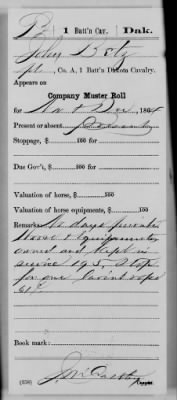 1 Batt'n Cav. Dak.
John
pt, Co. A, 1 Batt'n Dakota Cavalry.
Appears on
Company Muster Roll
for Nov & Dec, 1864
Present or absent Present
Stoppage, $ 100 for
Due Gov't, $ 100 for
Valuation of horse, $ 100
Valuation of horse equipments, $ 100
Remarks: days private
horse & Equipments
owned and kept in
service Stop
for one
Book mark:
(358) Copyist.